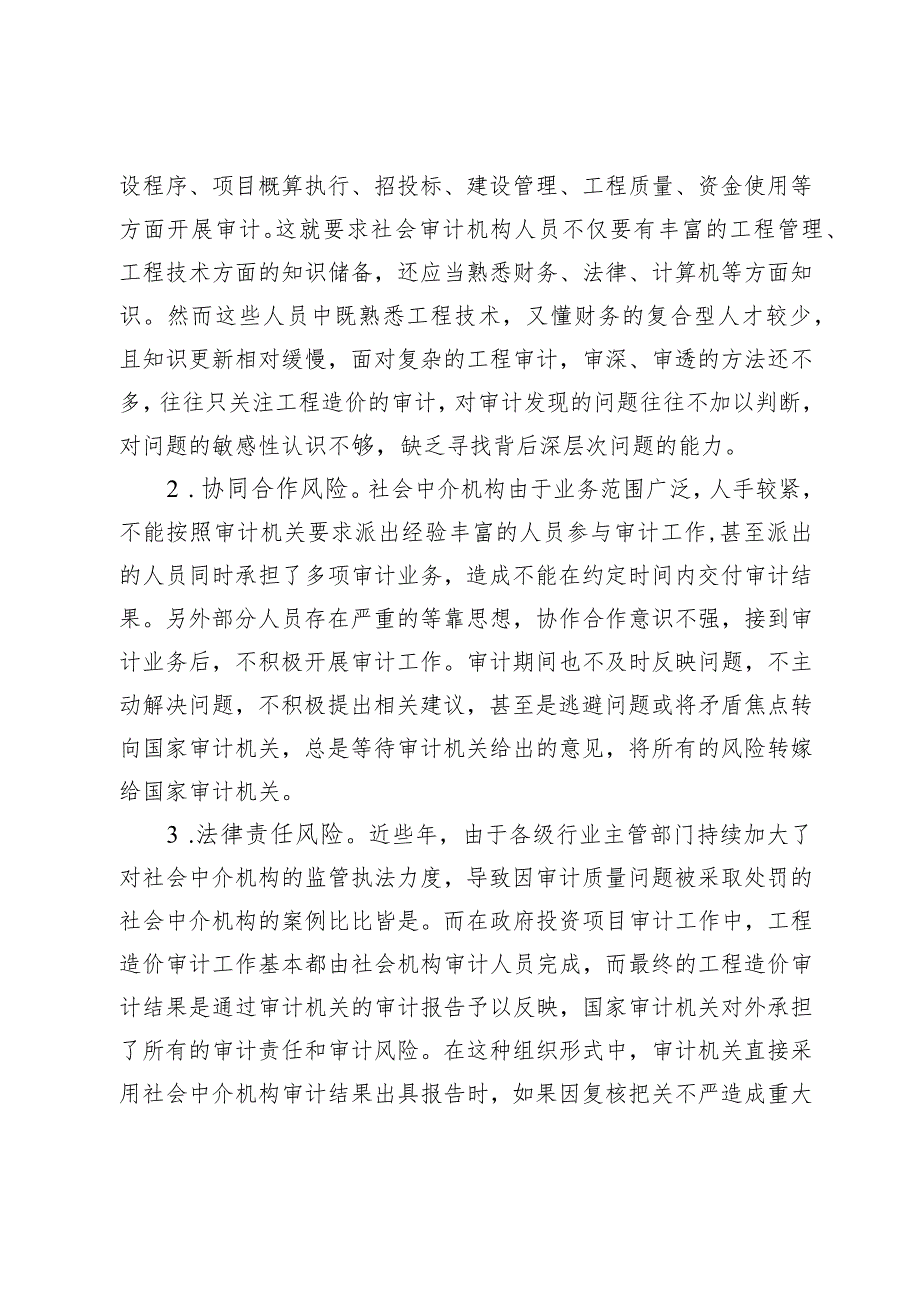 设程序、项目概算执行、招投标、建设管理、工程质量、资金使用等
方面开展审计。这就要求社会审计机构人员不仅要有丰富的工程管理、
工程技术方面的知识储备，还应当熟悉财务、法律、计算机等方面知
识。然而这些人员中既熟悉工程技术，又懂财务的复合型人才较少，
且知识更新相对缓慢，面对复杂的工程审计，审深、审透的方法还不
多，往往只关注工程造价的审计，对审计发现的问题往往不加以判断，
对问题的敏感性认识不够，缺乏寻找背后深层次问题的能力。
2．协同合作风险。社会中介机构由于业务范围广泛，人手较紧，
不能按照审计机关要求派出经验丰富的人员参与审计工作,甚至派出
的人员同时承担了多项审计业务，造成不能在约定时间内交付审计结
果。另外部分人员存在严重的等靠思想，协作合作意识不强，接到审
计业务后，不积极开展审计工作。审计期间也不及时反映问题，不主
动解决问题，不积极提出相关建议，甚至是逃避问题或将矛盾焦点转
向国家审计机关，总是等待审计机关给出的意见，将所有的风险转嫁
给国家审计机关。
3 .法律责任风险。近些年，由于各级行业主管部门持续加大了
对社会中介机构的监管执法力度，导致因审计质量问题被采取处罚的
社会中介机构的案例比比皆是。而在政府投资项目审计工作中，工程
造价审计工作基本都由社会机构审计人员完成，而最终的工程造价审
计结果是通过审计机关的审计报告予以反映，国家审计机关对外承担
了所有的审计责任和审计风险。在这种组织形式中，审计机关直接采
用社会中介机构审计结果出具报告时，如果因复核把关不严造成重大